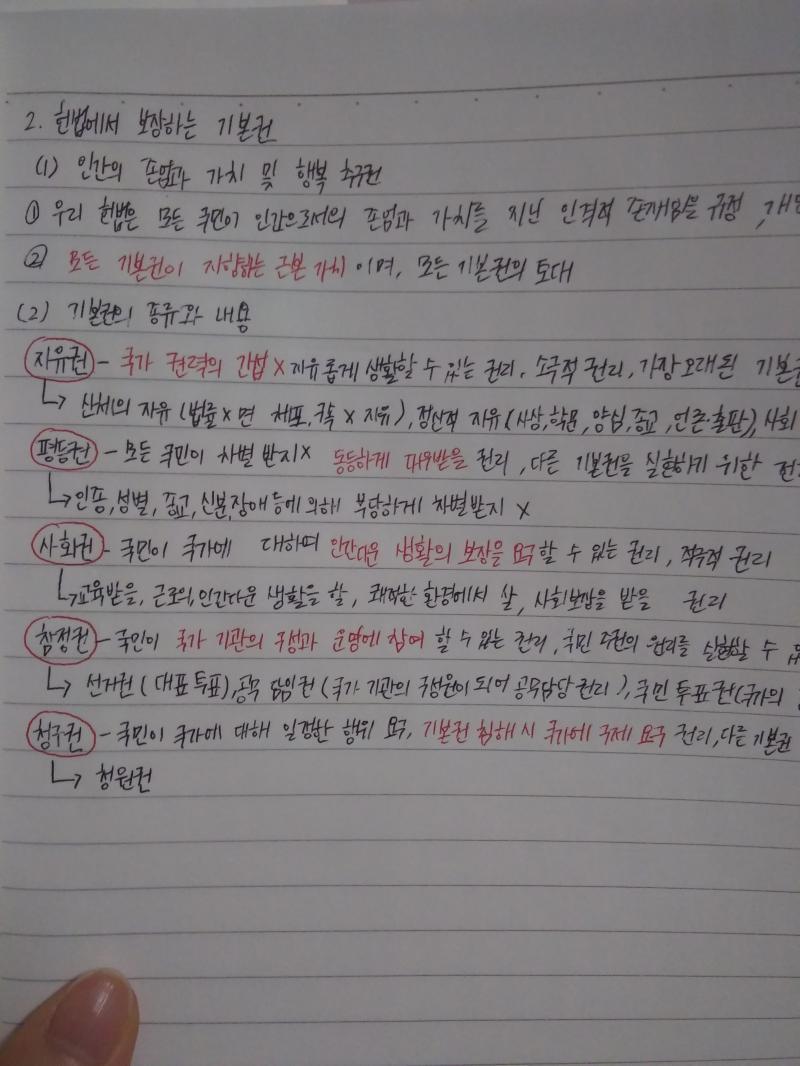 2. 헌법에서 보장하는 기본권
(1) 인간의 존엄과 가치 및 행복 추구권
① 우리 헌법은 모든 국민이 인간으로서의 존엄과 가치를 지닌 인격적 존재임을 규정, 개인
② 모든 기본권이 지향하는 근본 가치이며, 모든 기본권의 토대
(2) 기본권의 종류와 내용
자유권 - 국가 권력의 간섭 X 자유롭게 생활할 수 있는 권리, 소극적 권리, 가장 오래된 기본권
↳ 신체의 자유 (법률 X 면 체포, 구속 X 자유), 정신적 자유 (사상, 학문, 양심, 종교, 언론·출판), 사회
평등권 - 모든 국민이 차별 받지 X 동등하게 대우받을 권리, 다른 기본권을 실현하기 위한 전
↳ 인종, 성별, 종교, 신분, 장애 등에 의해 부당하게 차별받지 X
사회권 - 국민이 국가에 대하여 인간다운 생활의 보장을 요구할 수 있는 권리, 적극적 권리
↳ 교육받을, 근로의, 인간다운 생활을 할, 쾌적한 환경에서 살, 사회보장을 받을 권리
참정권 - 국민이 국가 기관의 구성과 운영에 참여 할 수 있는 권리, 국민 주권의 원리를 실현할 수 있
↳ 선거권 (대표 투표), 공무 담임권 (국가 기관의 구성원이 되어 공무담당 권리), 국민 투표권 (국가의
청구권 - 국민이 국가에 대해 일정한 행위 요구, 기본권 침해 시 국가에 구제 요구 권리, 다른 기본권
↳ 청원권